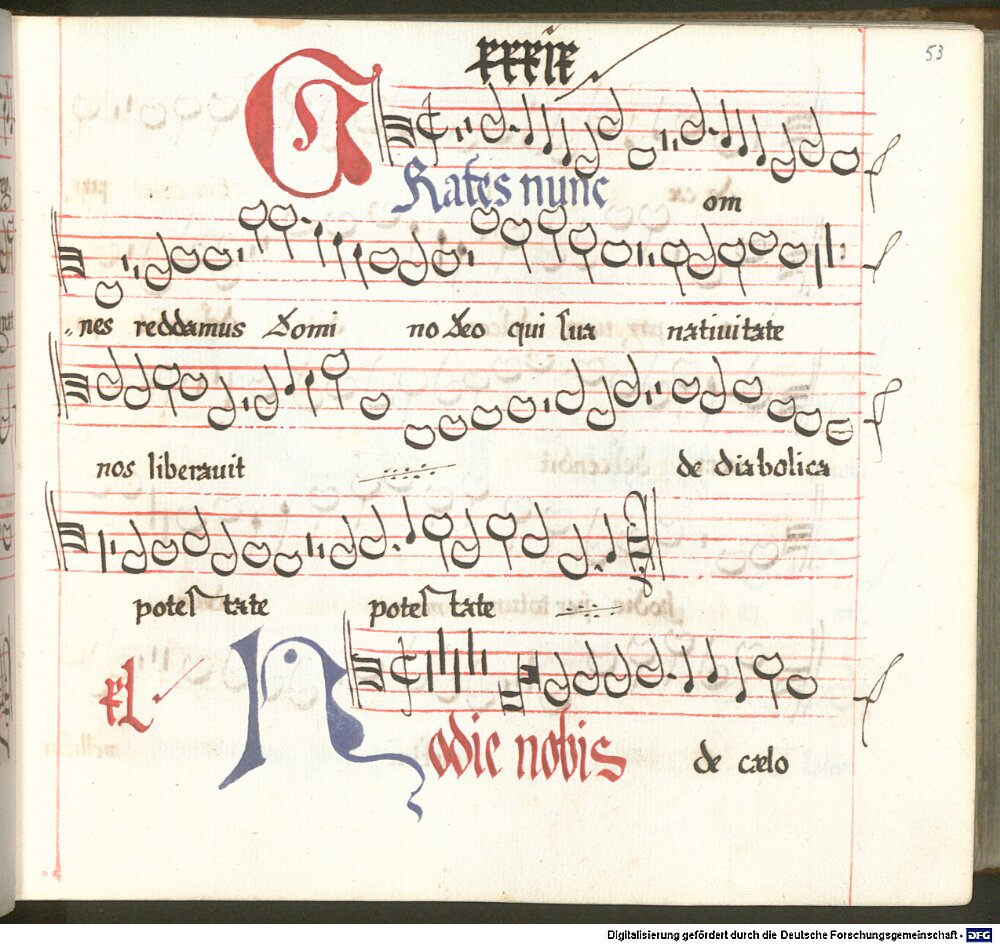 xxxix.
53
Grates nunc om
nes reddamus Domi no Deo qui sua nativitate
nos liberauit de diabolica
potestate potestate
xl.
Hodie nobis de cælo
Digitalisierung gefördert durch die Deutsche Forschungsgemeinschaft - DFG